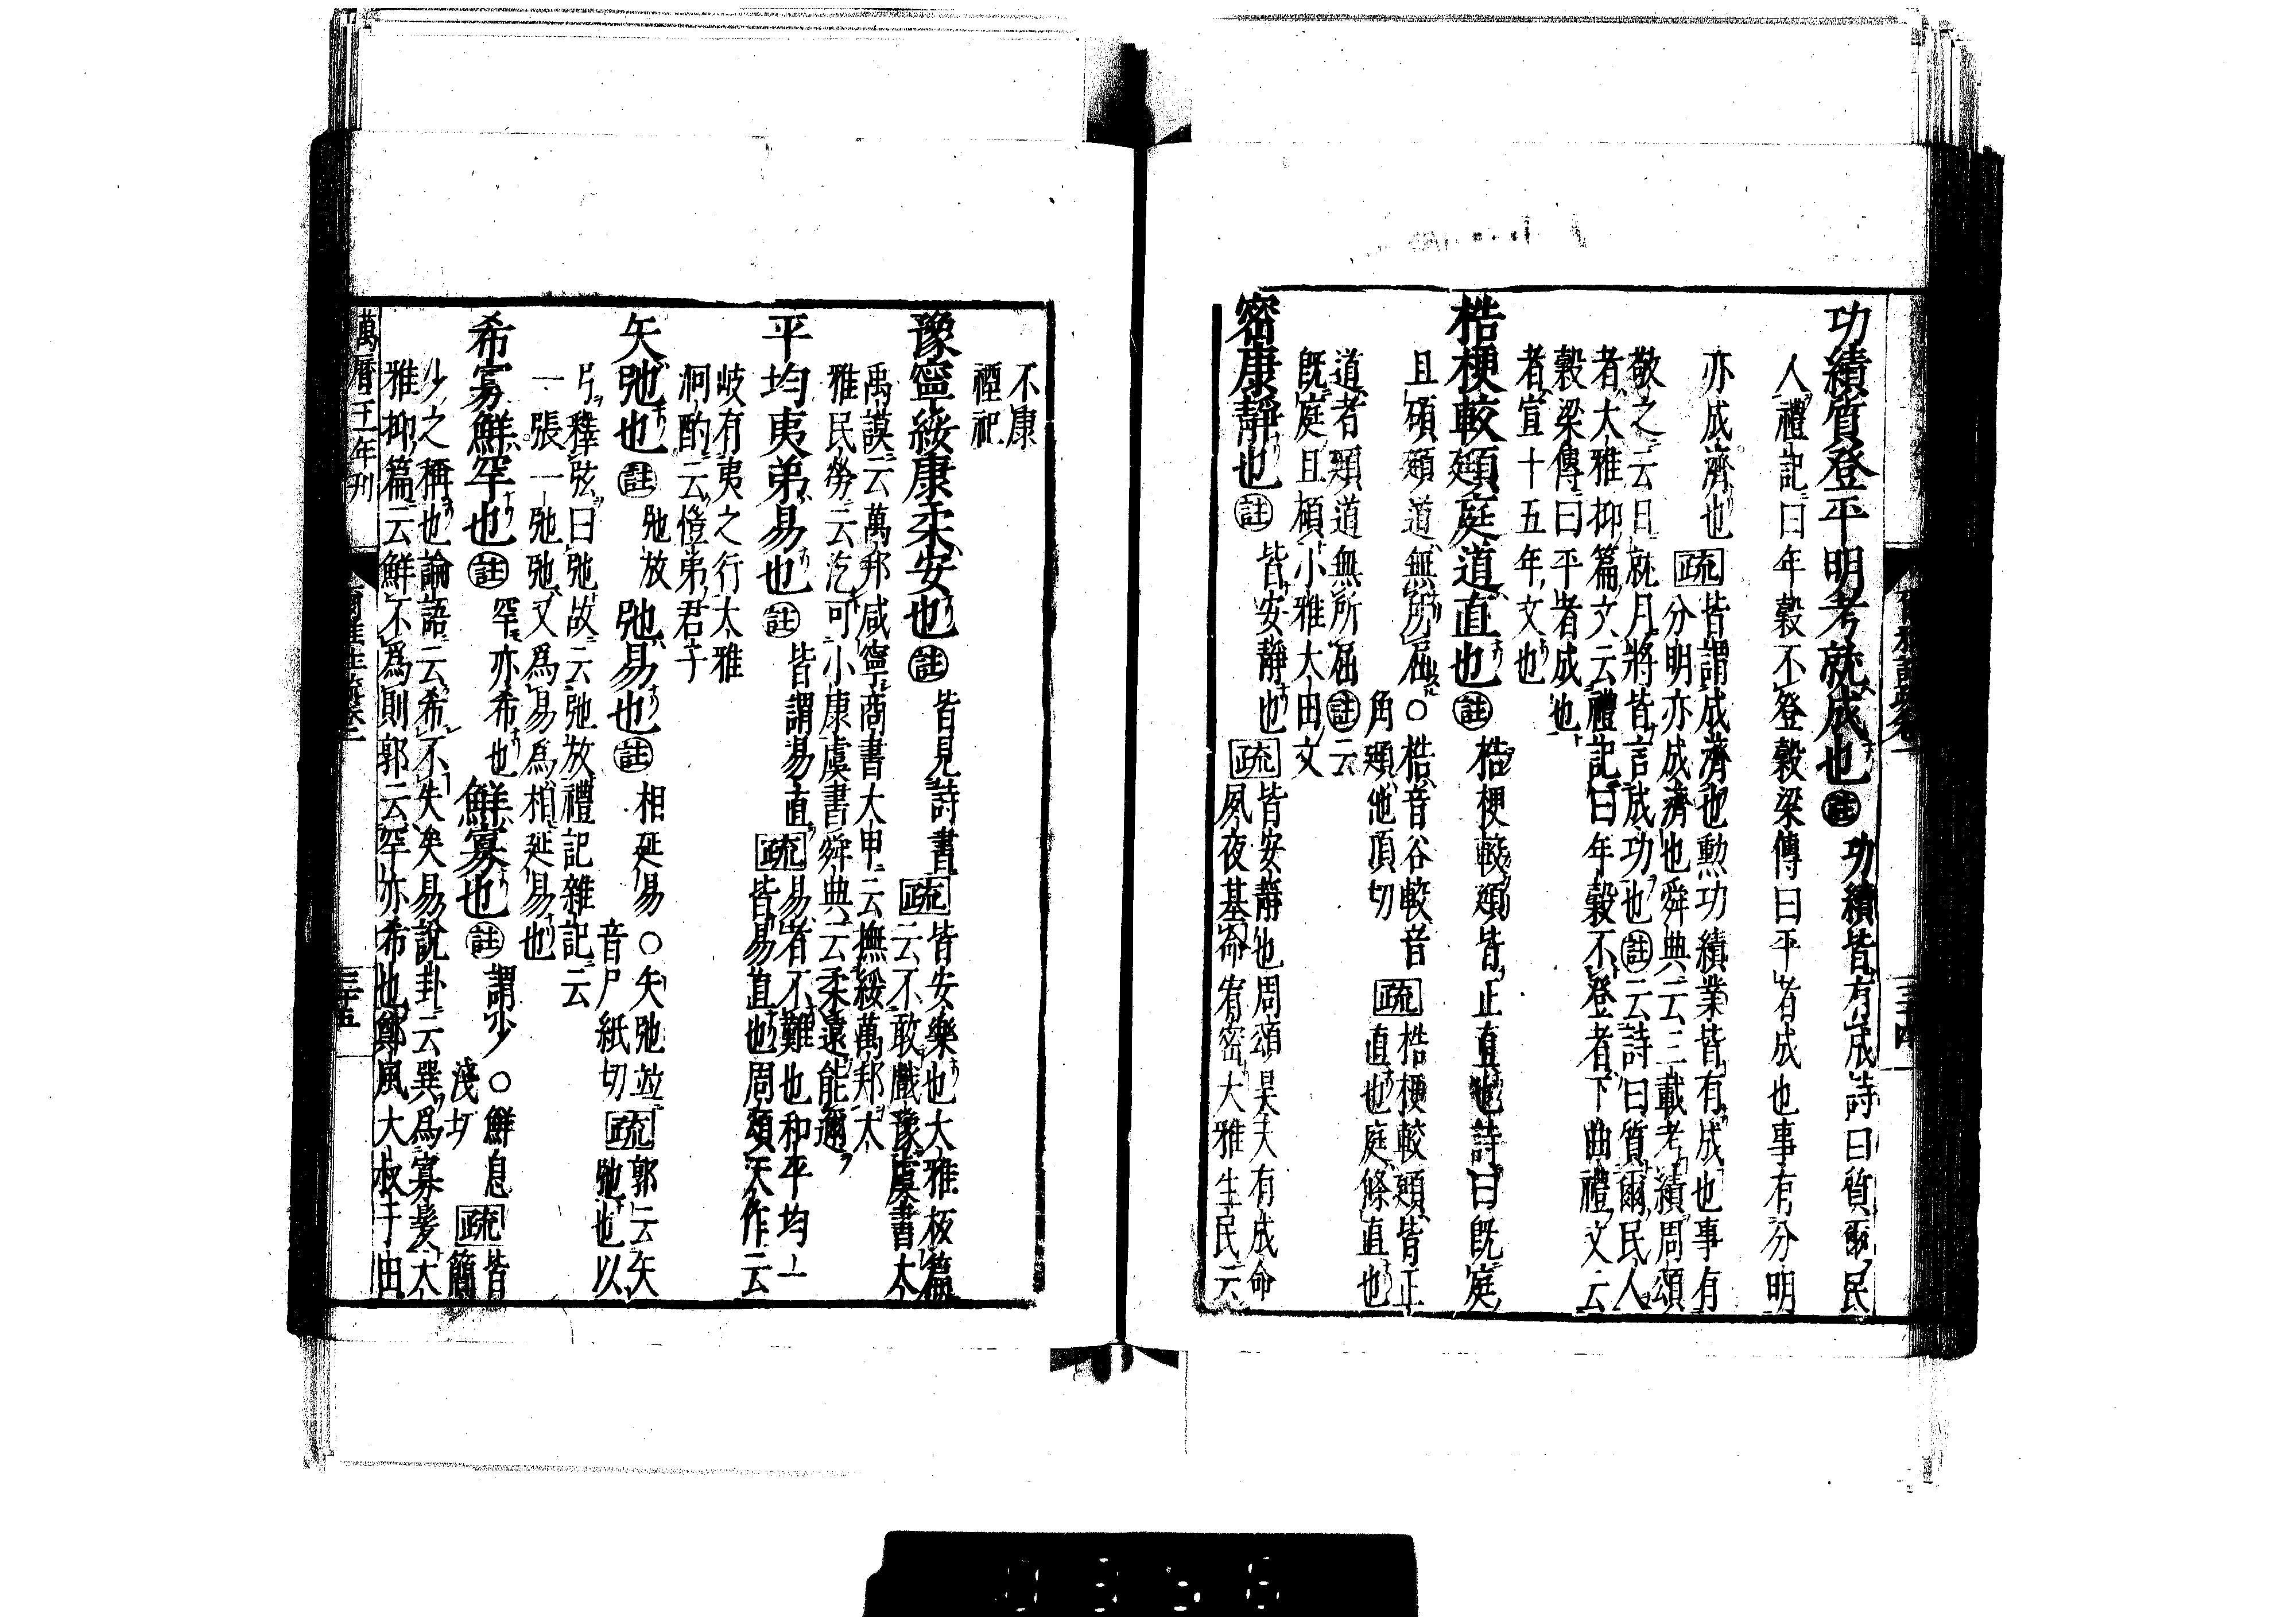 功績質登平明考就成也 註 功績皆有成詩曰質爾民
人禮記曰年穀不登穀梁傳曰平者成也事有分明
亦成濟也 疏 皆謂成濟也勲功績業皆有成也事有
分明亦成濟也舜典云三載考績周頌
敬之云日就月將皆言成功也 註 云詩曰質爾民人
者大雅抑篇文云禮記曰年穀不登者下曲禮文云
穀梁傳曰平者成也
者宣十五年文也
梏梗較頲庭道直也 註 梏梗較頲皆正直也詩曰既庭
且碩頲道無所屈○梏音谷較音
角頲他頂切 疏 梏梗較頲皆正
直也庭條直也
道者頲道無所屈 註 云
既庭且碩小雅大田文
密康靜也 註 皆安靜也 疏 皆安靜也周頌昊天有成命
夙夜基命宥密大雅生民云
不康
禋祀
豫寧綏康柔安也 註 皆見詩書 疏 皆安樂也大雅板篇
云不敢戲豫虞書大
禹謨云萬邦咸寧商書太甲云撫綏萬邦大
雅民勞云汔可小康虞書舜典云柔遠能邇
平均夷弟易也 註 皆謂易直 疏 易者不難也和平均一
皆易直也周頌天作云
岐有夷之行大雅
泂酌云愷弟君子
矢弛也 註 弛放 弛易也 註 相延易○矢弛並
音尸紙切 疏 郭云矢
弛也以
弓釋弦曰弛故云弛放禮記雜記云
一張一弛弛又爲易爲相延易也
希寡鮮罕也 註 罕亦希也 鮮寡也 註 謂少○鮮息
淺切 疏 皆
簡
少之稱也論語云希不失矣易說卦云巽爲寡髮大
雅抑篇云鮮不爲則郭云罕亦希也鄭風大叔于田
萬曆 年刊 爾雅註疏卷二 三十五